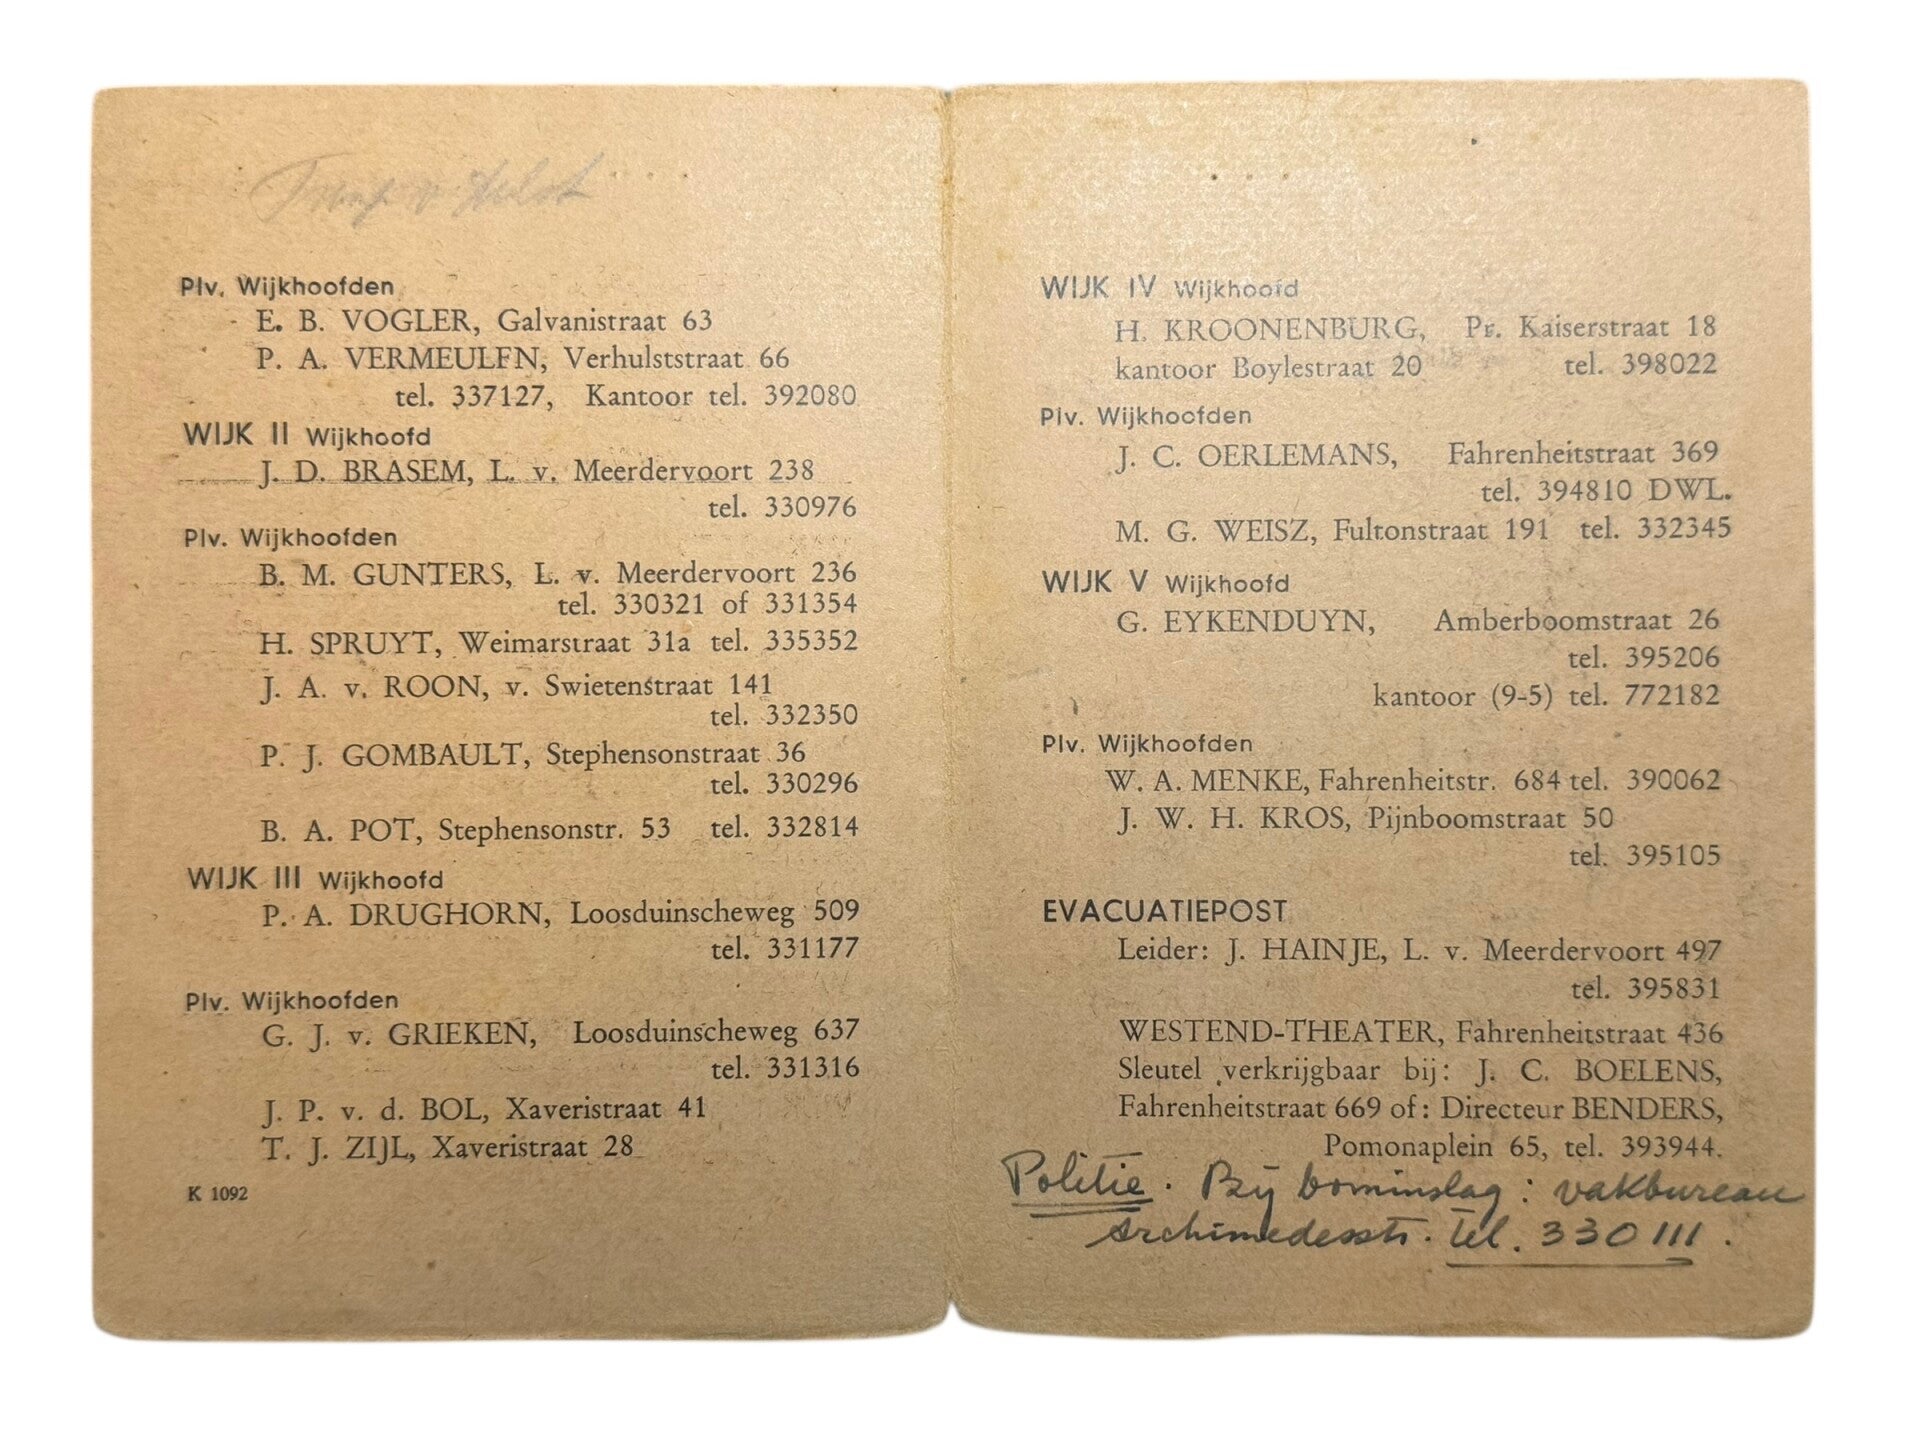 Plv. Wijkhoofden
E. B. VOGLER, Galvanistraat 63
P. A. VERMEULFN, Verhulststraat 66
tel. 337127, Kantoor tel. 392080
WIJK II Wijkhoofd
J. D. BRASEM, L. v. Meerdervoort 238
tel. 330976
Plv. Wijkhoofden
B. M. GUNTERS, L. v. Meerdervoort 236
tel. 330321 of 331354
H. SPRUYT, Weimarstraat 31a tel. 335352
J. A. v. ROON, v. Swietenstraat 141
tel. 332350
P. J. GOMBAULT, Stephensonstraat 36
tel. 330296
B. A. POT, Stephensonstr. 53 tel. 332814
WIJK III Wijkhoofd
P. A. DRUGHORN, Loosduinscheweg 509
tel. 331177
Plv. Wijkhoofden
G. J. v. GRIEKEN, Loosduinscheweg 637
tel. 331316
J. P. v. d. BOL, Xaveristraat 41
T. J. ZIJL, Xaveristraat 28
K 1092
WIJK IV Wijkhoofd
H. KROONENBURG, Pr. Kaiserstraat 18
kantoor Boylestraat 20 tel. 398022
Plv. Wijkhoofden
J. C. OERLEMANS, Fahrenheitstraat 369
tel. 394810 DWL.
M. G. WEISZ, Fultonstraat 191 tel. 332345
WIJK V Wijkhoofd
G. EYKENDUYN, Amberboomstraat 26
tel. 395206
kantoor (9-5) tel. 772182
Plv. Wijkhoofden
W. A. MENKE, Fahrenheitstr. 684 tel. 390062
J. W. H. KROS, Pijnboomstraat 50
tel. 395105
EVACUATIEPOST
Leider: J. HAINJE, L. v. Meerdervoort 497
tel. 395831
WESTEND-THEATER, Fahrenheitstraat 436
Sleutel verkrijgbaar bij: J. C. BOELENS,
Fahrenheitstraat 669 of: Directeur BENDERS,
Pomonaplein 65, tel. 393944.
Politie. Bij bominslag: vakbureau
Archimedesstr. tel. 330111.